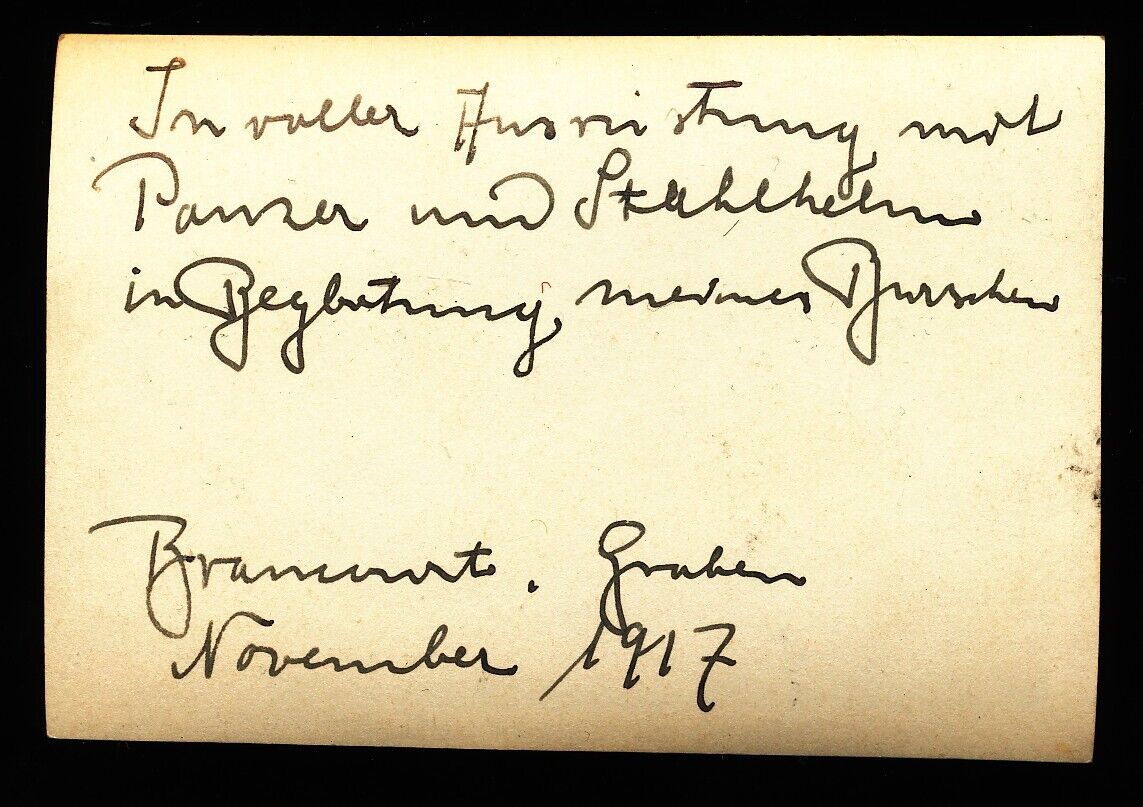 In voller Ausrüstung mit
Panzer und Stahlhelm
in Begleitung meines Burschen
Brancourt. Graben
November 1917